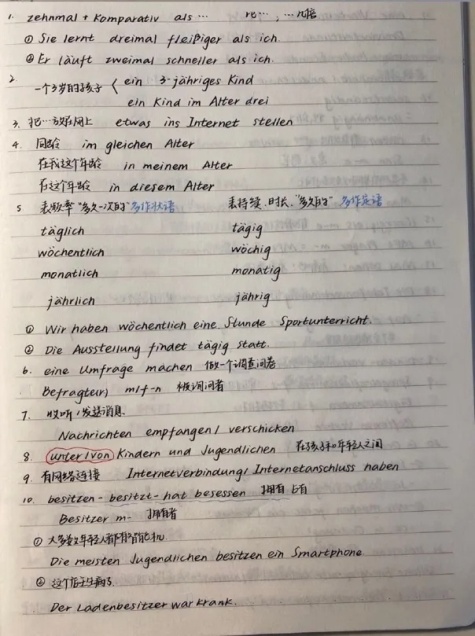 1. zehnmal + Komparativ als… 比…, …几倍
① Sie lernt dreimal fleißiger als ich.
② Er läuft zweimal schneller als ich.
2. 一个3岁的孩子 < ein 3-jähriges Kind
ein Kind im Alter drei
3. 把…放到网上 etwas ins Internet stellen
4. 同龄 im gleichen Alter
在我这个年龄 in meinem Alter
在这个年龄 in diesem Alter
5 表频率"多久一次的"多作状语 表持续时长,"多久的"多作定语
täglich tägig
wöchentlich wöchig
monatlich monatig
jährlich jährig
① Wir haben wöchentlich eine Stunde Sportunterricht.
② Die Ausstellung findet tägig statt.
6. eine Umfrage machen 做一个调查问卷
Befragter, m/f -n 被询问者
7. 收听/发送消息
Nachrichten empfangen/ verschicken
8. unter/von Kindern und Jugendlichen 在孩子和年轻人之间
9. 有网络连接 Internetverbindung/ Internetanschluss haben
10. besitzen - besitzt - hat besessen 拥有 占有
Besitzer m- 拥有者
① 大多数年轻人都有智能手机
Die meisten Jugendlichen besitzen ein Smartphone
② 这个店主生病了
Der Ladenbesitzer war krank.